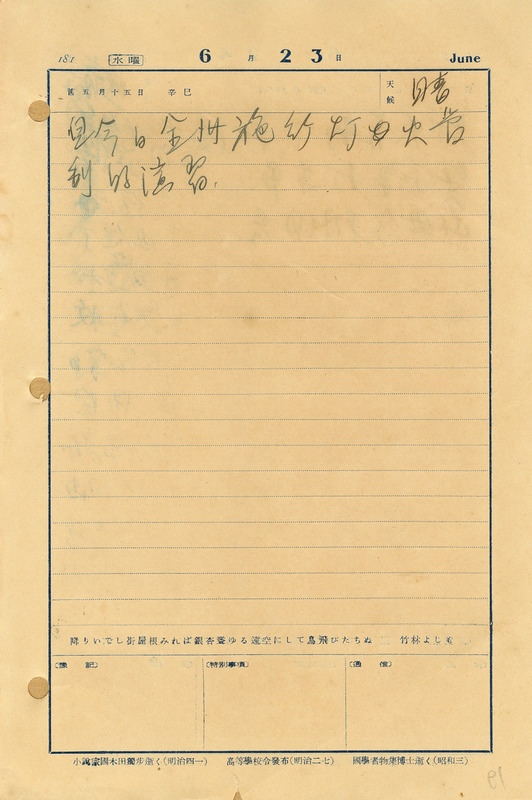 181 水曜 6月23日 June
舊五月十五日 辛巳 天候 晴
自今日全州施行灯火管
制的演習.
降りいでし街屋根みれば銀杏聳ゆる遠空にして鳥飛びたちぬ 竹林よしを
〔豫記〕 〔特別事項〕 〔通信〕
小說家國木田獨步逝く(明治四一) 高等學校令發布(明治二七) 國學者物集博士逝く(昭和三)
91